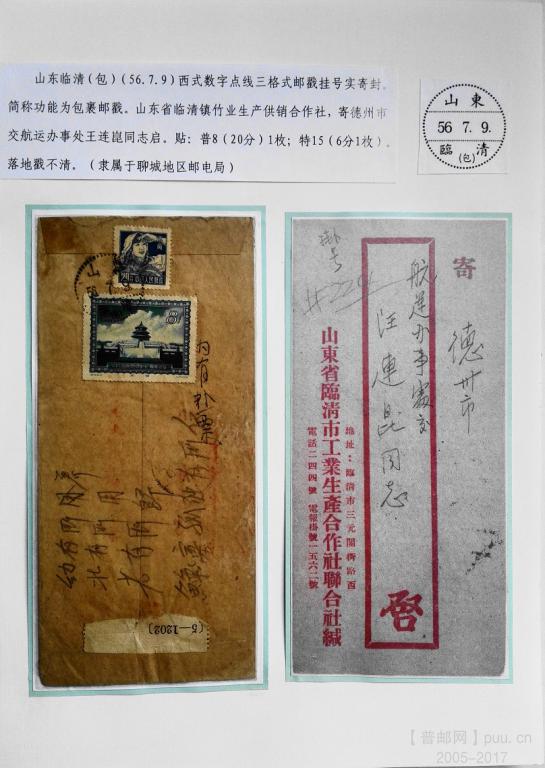 山东临清(包)(56.7.9)西式数字点线三格式邮戳挂号实寄封。
简称功能为包裹邮戳。山东省临清镇竹业生产供销合作社，寄德州市
交航运办事处王连崑同志启。贴：普8(20分)1枚；特15(6分1枚)。
落地戳不清。(隶属于聊城地区邮电局)
山東
56 7. 9.
臨(包)清
山
56 7. 9.
8
内有补票
幼有所养
壮有所用
老有所归
鰥寡孤独有所
(5—1202)
寄
德州市
航运办事處交
汪連崑同志
啓
掛号
#224
地址：臨清市三元閣橋路西
山東省臨清市工業生產合作社聯合社緘
電話二四四號 電報掛號一五六二號
【普邮网】puu.cn
2005-2017